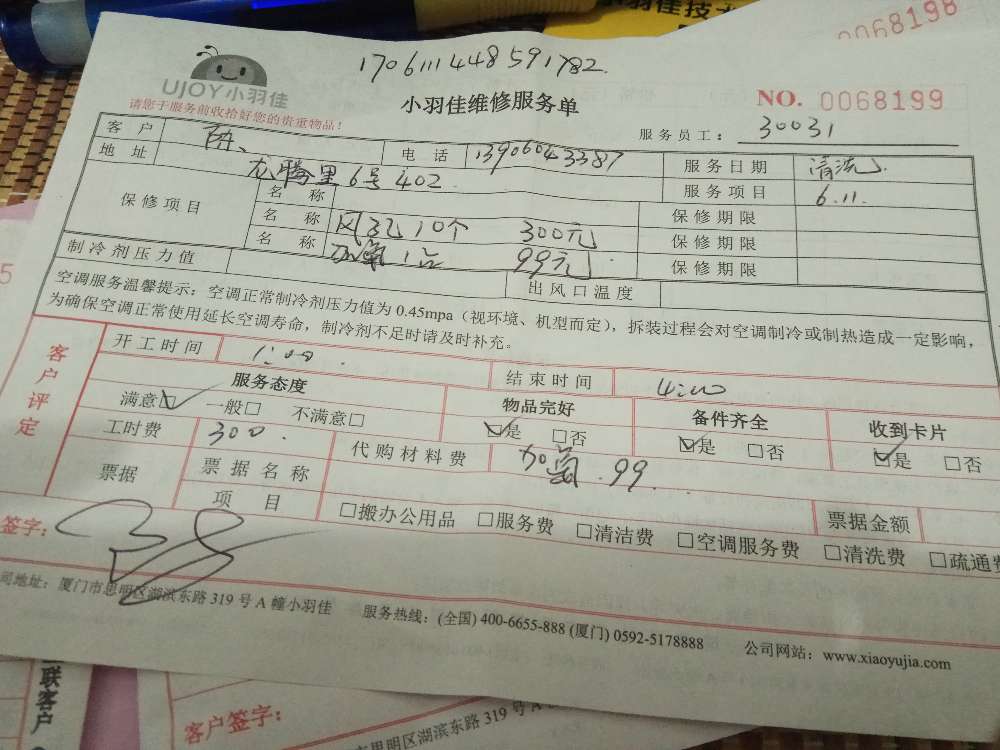 小羽佳技术
0068198
1706111448591782
UJOY小羽佳
小羽佳维修服务单
NO. 0068199
请您于服务前收拾好您的贵重物品!
服务员工: 30031
客户 电话 13906043387 服务日期 清洗
地址 龙腾里6号402 服务项目 6.11.
保修项目 名称 保修期限
名称 风口10个 300元 保修期限
名称 加氟1台 99元 保修期限
制冷剂压力值 出风口温度
空调服务温馨提示:空调正常制冷剂压力值为0.45mpa(视环境、机型而定),拆装过程会对空调制冷或制热造成一定影响,
为确保空调正常使用延长空调寿命,制冷剂不足时请及时补充。
客户评定
开工时间 1:00 结束时间 4:00
服务态度 物品完好 备件齐全 收到卡片
满意☑ 一般□ 不满意□ ☑是 □否 ☑是 □否 ☑是 □否
工时费 300. 代购材料费 加氟.99.
票据 票据名称 票据金额
项目 □搬办公用品 □服务费 □清洁费 □空调服务费 □清洗费 □疏通费
签字:
司地址:厦门市思明区湖滨东路319号A幢小羽佳 服务热线:(全国)400-6655-888(厦门)0592-5178888 公司网站:www.xiaoyujia.com
联客户
客户签字:
思明区湖滨东路319号A